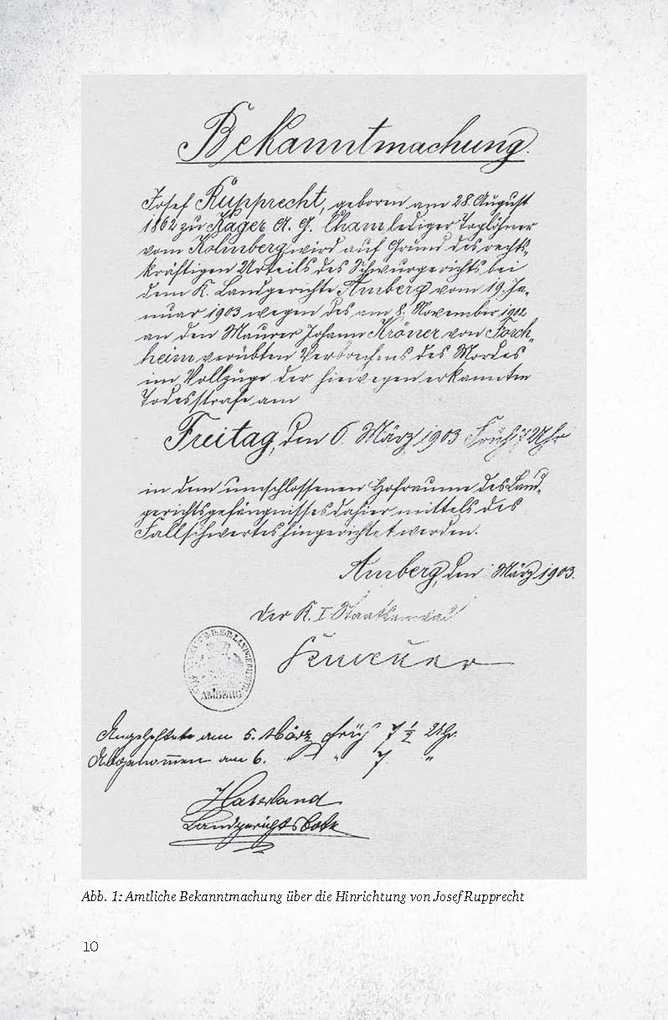 Bekanntmachung.
Josef Rupprecht, geboren am 28. August
1862 zu Kager A. G. Cham lediger Taglöhner
vom Kolmberg wird auf Grund des rechts-
kräftigen Urteils des Schwurgerichts bei
dem K. Landgerichte Amberg vom 19. Ja-
nuar 1903 wegen des am 8. November 1902
an dem Maurer Johann Kröner von Forch-
heim verübten Verbrechens des Mordes
im Vollzuge der hiewegen erkannten
Todesstrafe am
Freitag, den 6. März 1903 Früh 7 Uhr
in dem umschlossenen Hofraume des Land-
gerichtsgefängnisses dahier mittels des
Fallschwertes hingerichtet werden.
Amberg, den März 1903.
Der K. I Staatsanwalt
AMBERG
Angeheftet am 5. März früh 7 1/2 Uhr.
Abgenommen am 6. " " 7 "
Haterland
Landgerichtsbote
Abb. 1: Amtliche Bekanntmachung über die Hinrichtung von Josef Rupprecht
10